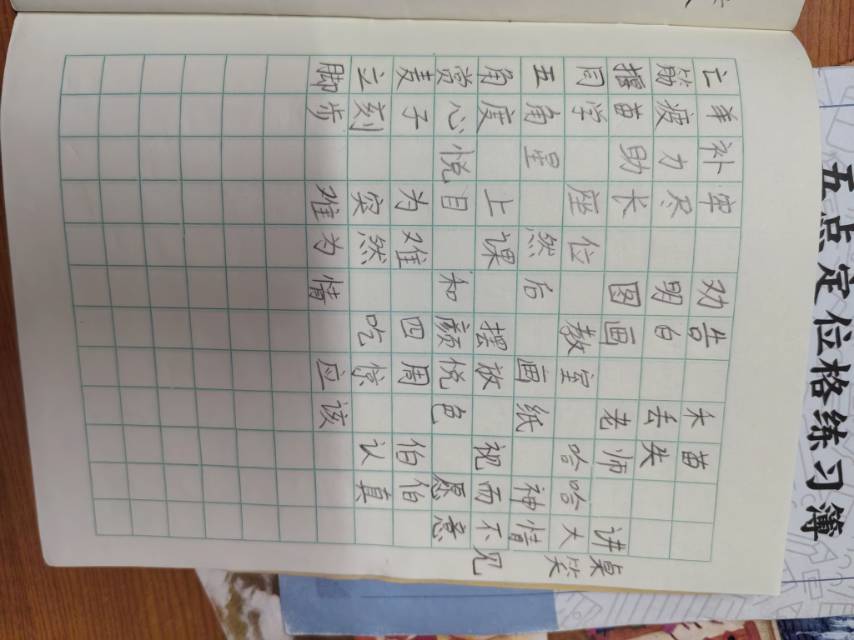 亡羊补牢 劝告 禾苗
筋疲力尽 明白 丢失
揠苗助长 图画 老师 讲桌
同学 座位 教室 哈哈大笑
五角星 然后 画纸 神情
角度 上课 摆放 视而不见
赏心悦目 和颜悦色 愿意
麦子 为难 四周 伯伯
立刻 突然 吃惊 认真
脚步 难为情 应该
五点定位格练习簿